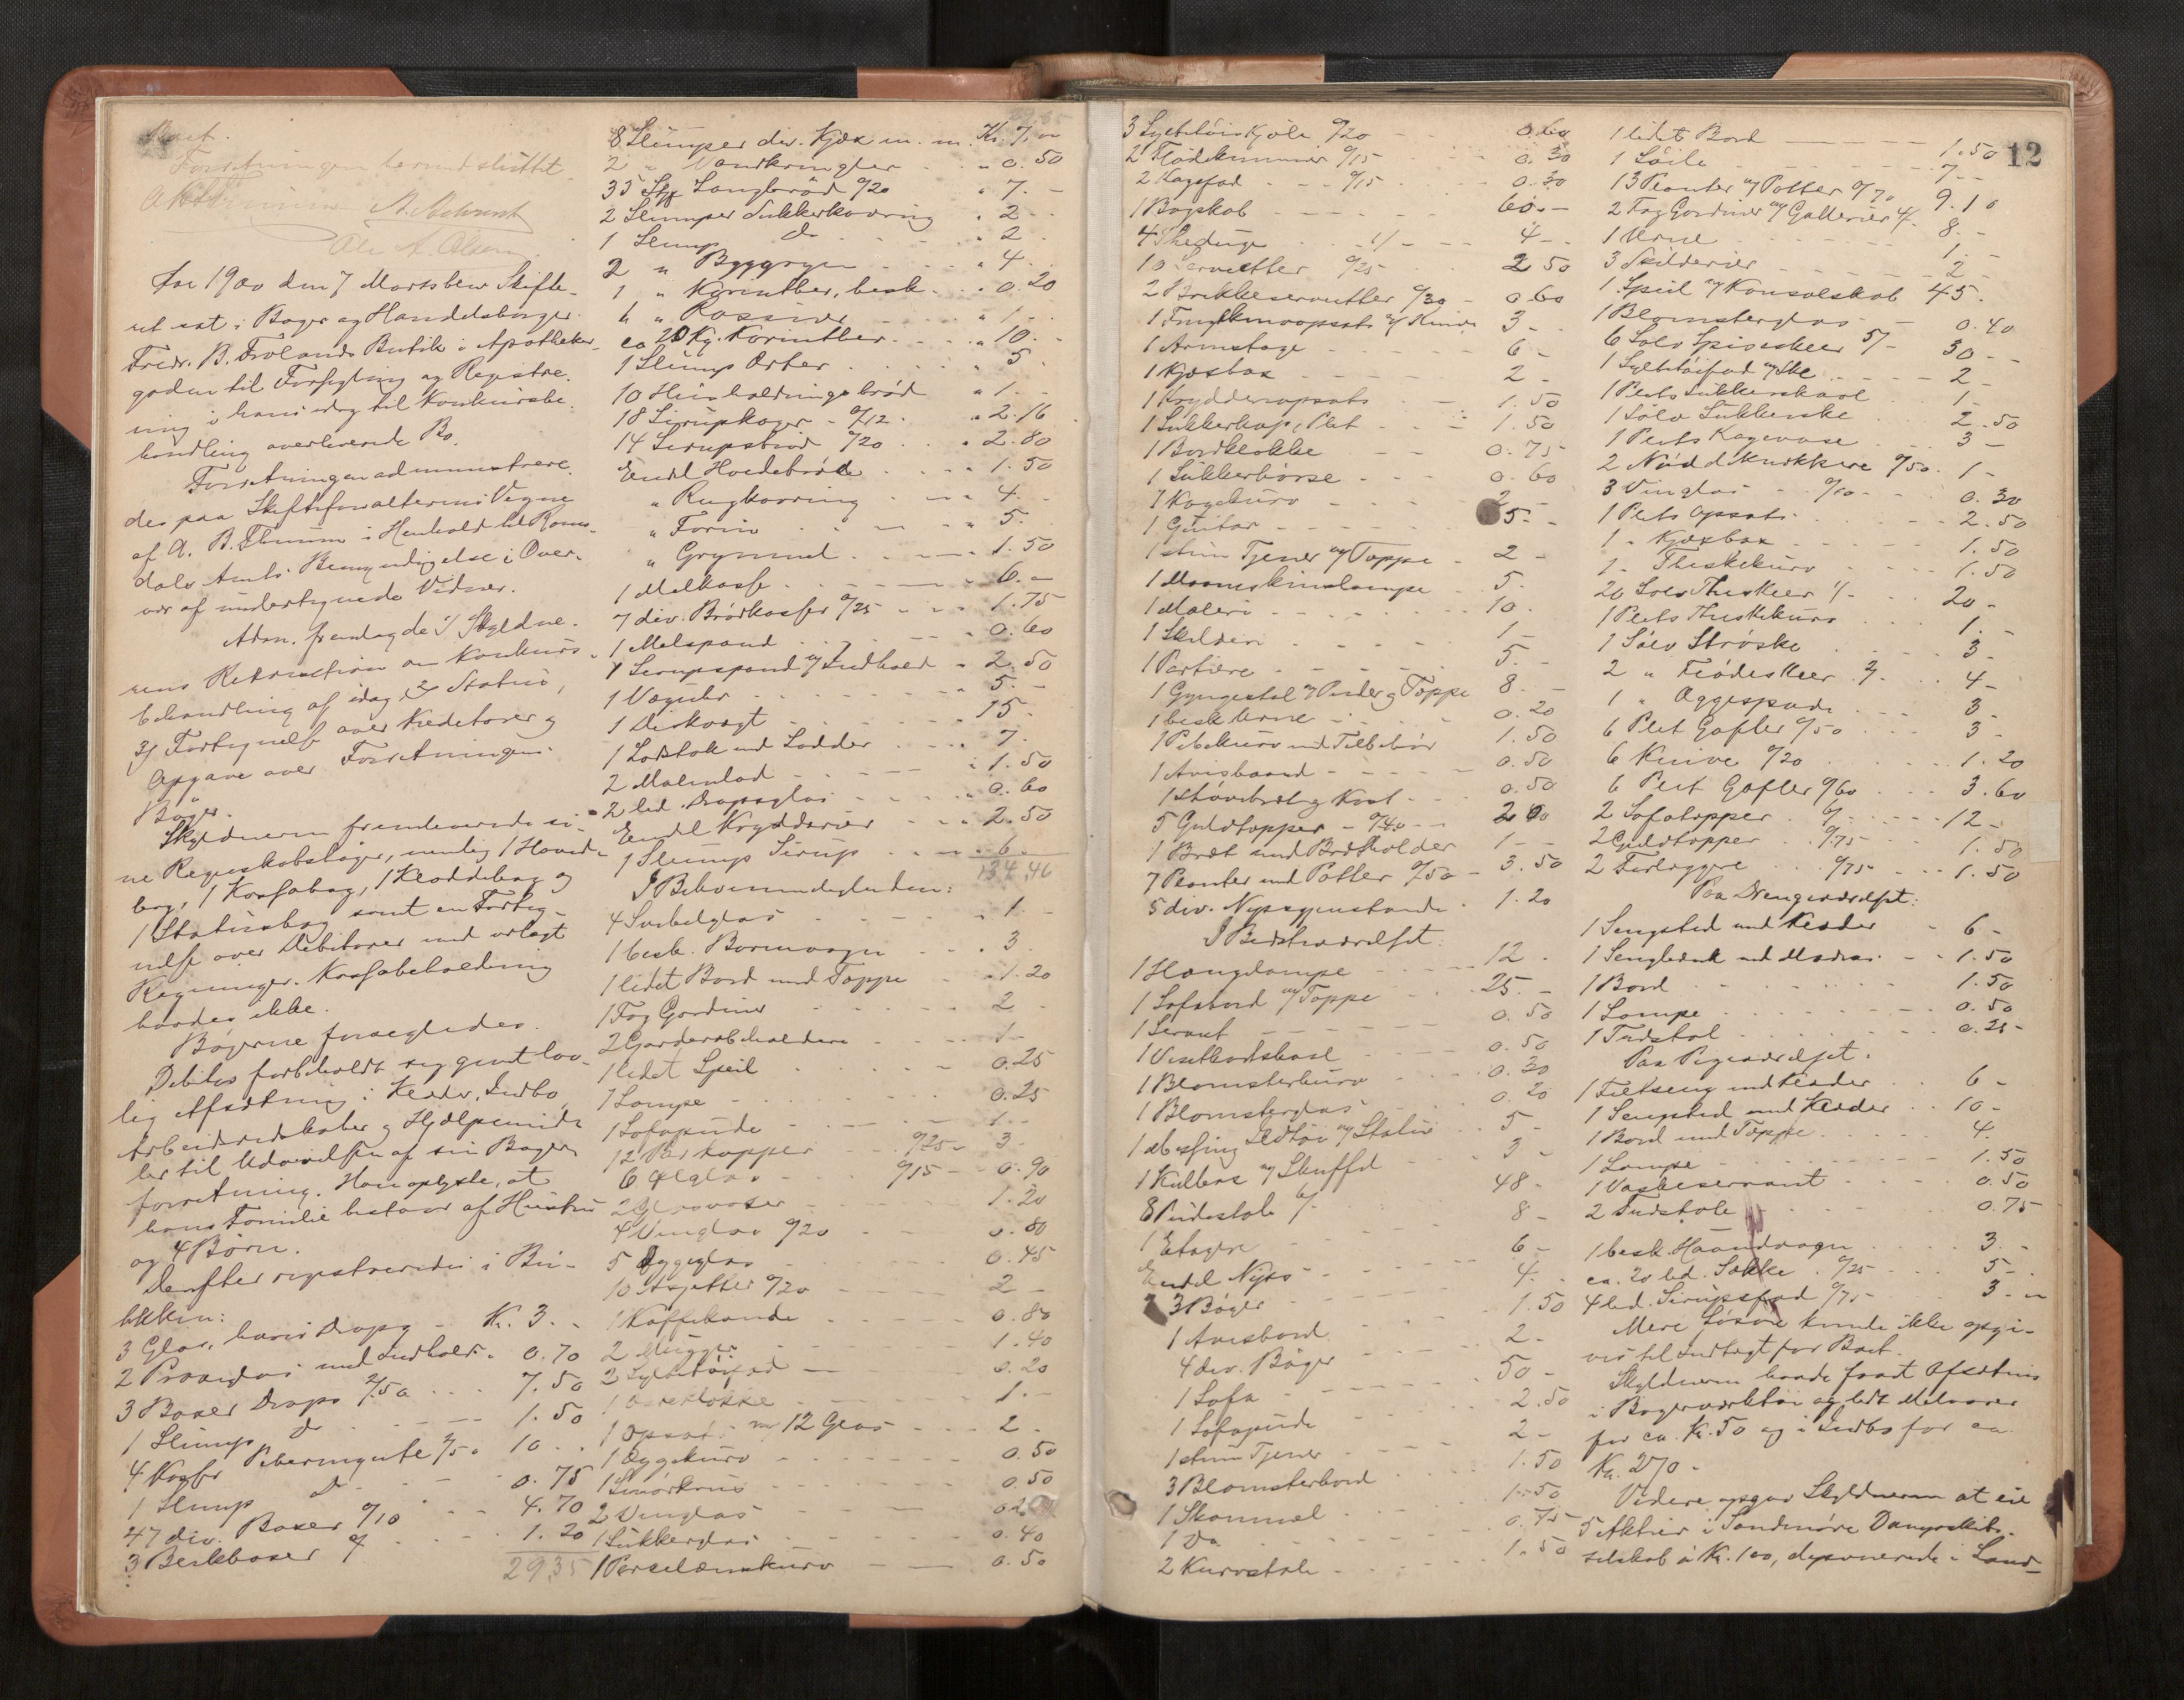 Boet.
Forretningen hermed sluttet.
Ole A. Olsen
Aar 1900 den 7 Marts blev Skifte-
ret sat i Bager og Handelsborger
Fredr. B. Frolands Butik i Apotheker-
gaden til Forsegling og Registre-
ring i hans idag til Konkursbe-
handling overleverede Bo.
Forretningen administrere-
des paa Skifteforvalterens Vegne
af A. B. Thunem i Henhold til Roms-
dals Amts Bemyndigelse i Over-
vær af undertegnede Vidner.
Adm. fremlagde 1/ Skyldne-
rens Rekvisition om Konkurs-
behandling af idag, 2/ Status,
3/ Fortegnelse over Kreditorer og
Opgave over Forretningens
Bøger.
Skyldneren fremleverede si-
ne Regnskabsbøger, nemlig 1 Hoved-
bog, 1 Kassabog, 1 Kladdebog og
1 Statusbog samt en Forteg-
nelse over Debitorer med vedlagt
Regninger. Kassabeholdning
havdes ikke.
Bøgerne forsegledes.
Debitor forbeholdt sig sæd lov-
lig Afsætning i Klæder, Indbo,
Arbeidsredskaber og Hjælpemid-
ler til Udøvelsen af sin Bager-
forretning. Han oplyste, at
hans Familie bestaar af Hustru
og 4 Børn.
Derefter registreredes i Bu-
tikken:
3 Glas, hvori Drops - Kr. 3. -
2 Prøveglas med Indhold . 0.70
3 Boxer Drops 2/50 . . . 7.50
1 Slump do . - - - 1.50
4 Kasser Pebermynte 2/50 10 . .
1 Slump do . - - 0.75
47 div. Boxer 0/10 . - - 4.70
3 Blikboxer . . . 1.20
29.35
8 Slumper div. Kjæx m. m. Kr. 7. -
2 " Vandkringler . . " 0.50
35 Stk Langbrød 0/20 " 7. -
2 Slumper Sukkerkavring " 2 -
1 Slump do . . . " 2
2 " Byggryn . . " 4.
1 " Korinther, besk. . . 0.20
" Rossiner . . " 1. -
ca 20 Kg. Korinther . . . " 10. -
1 Slump Erter . . . " 5
10 Husholdningsbrød " 1. -
18 Sirupkager - 0/12 . " 2.16
14 Sirupsbrød 0/20 . . " 2.80
Endel Hvedebrød . . . . 1.50
" Rugkavring . . . 4.
" Farin . . . . 5.
" Grynmel . . . 1.50
1 Melkasse . . . . 6. -
7 div. Brødkasser 0/25 . . 1.75
1 Melspand . . . . 0.60
1 Sirupsspand og Indhold " 2.50
1 Væguhr . . . . 5. -
1 Diskvægt . . . . 15.
1 Lodstok med Lodder . . 7.
2 Malmlod . . . . 1.50
2 led. Dropsglas . . . 0.60
Endel Krydderier . . . 2.50
1 Slump Sirup . . . 6. -
134.46
I Bekvemmeligheden:
4 Syltetøiglas . . . " 1. -
1 besk. Barnevogn . . 3
1 lidet Bord med Tæppe " 1.20
1 Fag Gardiner . . . 2 -
2 Garderobeholdere . . 1 -
1 lidet Speil . . . 0.25
1 Lampe . . . 0.25
1 Sofapude . . . 1. -
12 Par kopper . . 0/25 - 3 -
6 Ølglas . . 0/15 - - 0.90
2 Glasvaser . . . 1.20
4 Vinglas 0/20 . . 0.80
5 Æggeglas . . . 0.45
10 Asjetter 0/20 . . 2 -
1 Kaffekande . . . 0.80
2 Mugger . . . 1.40
2 Syltetøifad — . . 0.20
1 Osteklokke . . . 1. -
1 Opsats med 12 Glas . . . 2 -
1 Æggekurv . . . 0.50
1 Smørkrus . . . 0.50
2 Vinglas . . .
1 Sukkerglas . . . 0.40
1 Porcelænskurv . . — 0.50
3 Syltetøiskjole 0/20 - - 0.60
2 Flødekummer 0/15 . . 0.30
2 Kagefad . - - 0/15 . . 0.30
1 Bogskab - - - - 60. -
4 Theduge . . 1/ - - - 4 - -
10 Servietter 0/25 . . 2.50
2 Brikkeservietter 0/30 - 0.60
1 Frugtknivopsats og Knive 3 - .
1 Armstage . . . . 6 -
1 Kjæxbox . . . . 2 -
1 Krydderopsats . . . 1.50
1 Sukkerkop, Plet . . . 1.50
1 Bordklokke . . . 0.75
1 Sukkerbørse . . . 0.60
1 Kagekurv . . . 2 -
1 Guitar . . . . 5. -
1 stum Tjener og Tæppe . 2 -
1 Maaneskinslampe . 5. -
1 Maleri . . . . 10.
1 Skilderi . . . . 1 -
1 Portiere . . . . 5. -
1 Gyngestol m Puder og Tæppe 8. -
1 besk. Urne . . . 0.20
1 Pibekurv med Tilbehør 1.50
1 Avisbaand . . . 0.50
1 Støvebræt og Kost . . 0.50
5 Gulvtæpper - 0/40 - - 2 00
1 Bræt med Brætholder 1 - -
7 Planter med Potter 0/50 - 3.50
5 div. Nipsgjenstande . 1.20
I Bedsteværelset:
1 Hængelampe . . . 12 .
1 Sofabord og Tæppe . . 25. -
1 Servant . . . . 0.50
1 Visitkortskaal . . . 0.50
1 Blomsterkurv . . . 0.30
1 Blomsterglas . . . 0.20
1 Messing Ildtøi og Stativ . . 5 -
1 Kulboxe og Skuffel . . . 3 -
8 Pudestole 6/ . . . 48 -
1 Etagere . . . . 8 -
Endel Nips . . . 6 -
3 Bøger . . . . 4. -
1 Avisbord . . . 1.50
4 div. Bøger . . . 2 -
1 Sofa . . . . 50 -
1 Sofapude . . . 2.50
1 stum Tjener . . . 2 -
3 Blomsterbord . . . 1.50
1 Skammel . . . 1.50
1 Do . . . . 0.75
2 Kurvstole . . . 1.50
1 lidet Bord . . . 1.50
12
1 Søile . . . . 7 - -
13 Planter og Potter 0/70 9.10
2 Fag Gardiner og Gallerier 4/- 8. -
1 Urne . . . . 1. -
3 Skilderier . . . 2 -
1 Speil og Konsolskab 45. -
1 Blomsterglas . . - 0.40
6 Sølv Spiseskeer 5/- 30 - -
1 Syltetøifad og Ske . . . 2 -
1 Plets Sukkerskaal . . 1 -
1 Sølv Sukkerske . . 2.50
1 Plets Kagevase . . 3 -
2 Nøddeknækkere 0/50 . 1 -
3 Vinglas - 0/10 - . 0.30
1 Plets Opsats . . . 2.50
1 " Kjæxbox . . . 1.50
1 " Theskekurv . . . 1.50
20 Sølv Theskeer 1/- . . 20 -
1 Plets Theskekurv . . 1. -
1 Sølv Strøske . . . 3 -
2 " Flødeskeer 2/ . . 4 -
1 " Æggespade . . . 3 -
6 Plet Gafler 0/50 . . . 3 -
6 Knive 0/20 . . . 1.20
6 Plet Gafler 0/60 . . . 3.60
2 Sofatæpper . 6/ . . . 12 -
2 Gulvtæpper . 0/75 . . 1.50
2 Forlæggere . 0/75 . . 1.50
Paa Drengeværelset:
1 Sengsted med Klæder . 6 -
1 Sengbænk med Madras . - 1.50
1 Bord . . . . 1.50
1 Lampe . . . . 0.50
1 Træstol . . . . 0.25
Paa Pigeværelset:
1 Feltseng med Klæder . . 6 -
1 Sengsted med Klæder . . 10 -
1 Bord med Tæppe . . . 4.
1 Lampe . . . . 1.50
1 Vaskeservant . . . 0.50
2 Træstole . . . . 0.75
1 besk Haandvogn . . . 3. -
ca. 20 led. Sække . 0/25 5 - .
4 led. Sirupsfad 0/75 . 3. -
Mere Løsøre kunde ikke opgi-
ves til Indtægt for Boet.
Skyldneren havde faaet Afsætning
i Bagerværktøi og lidt Melvarer
for ca. Kr. 50 og i Indbo for ca.
Kr. 270 -
Videre opgav Skyldneren at eie
5 Aktier i Søndmøre Dampskibs-
selskab á Kr. 100, deponerede i Sønd-